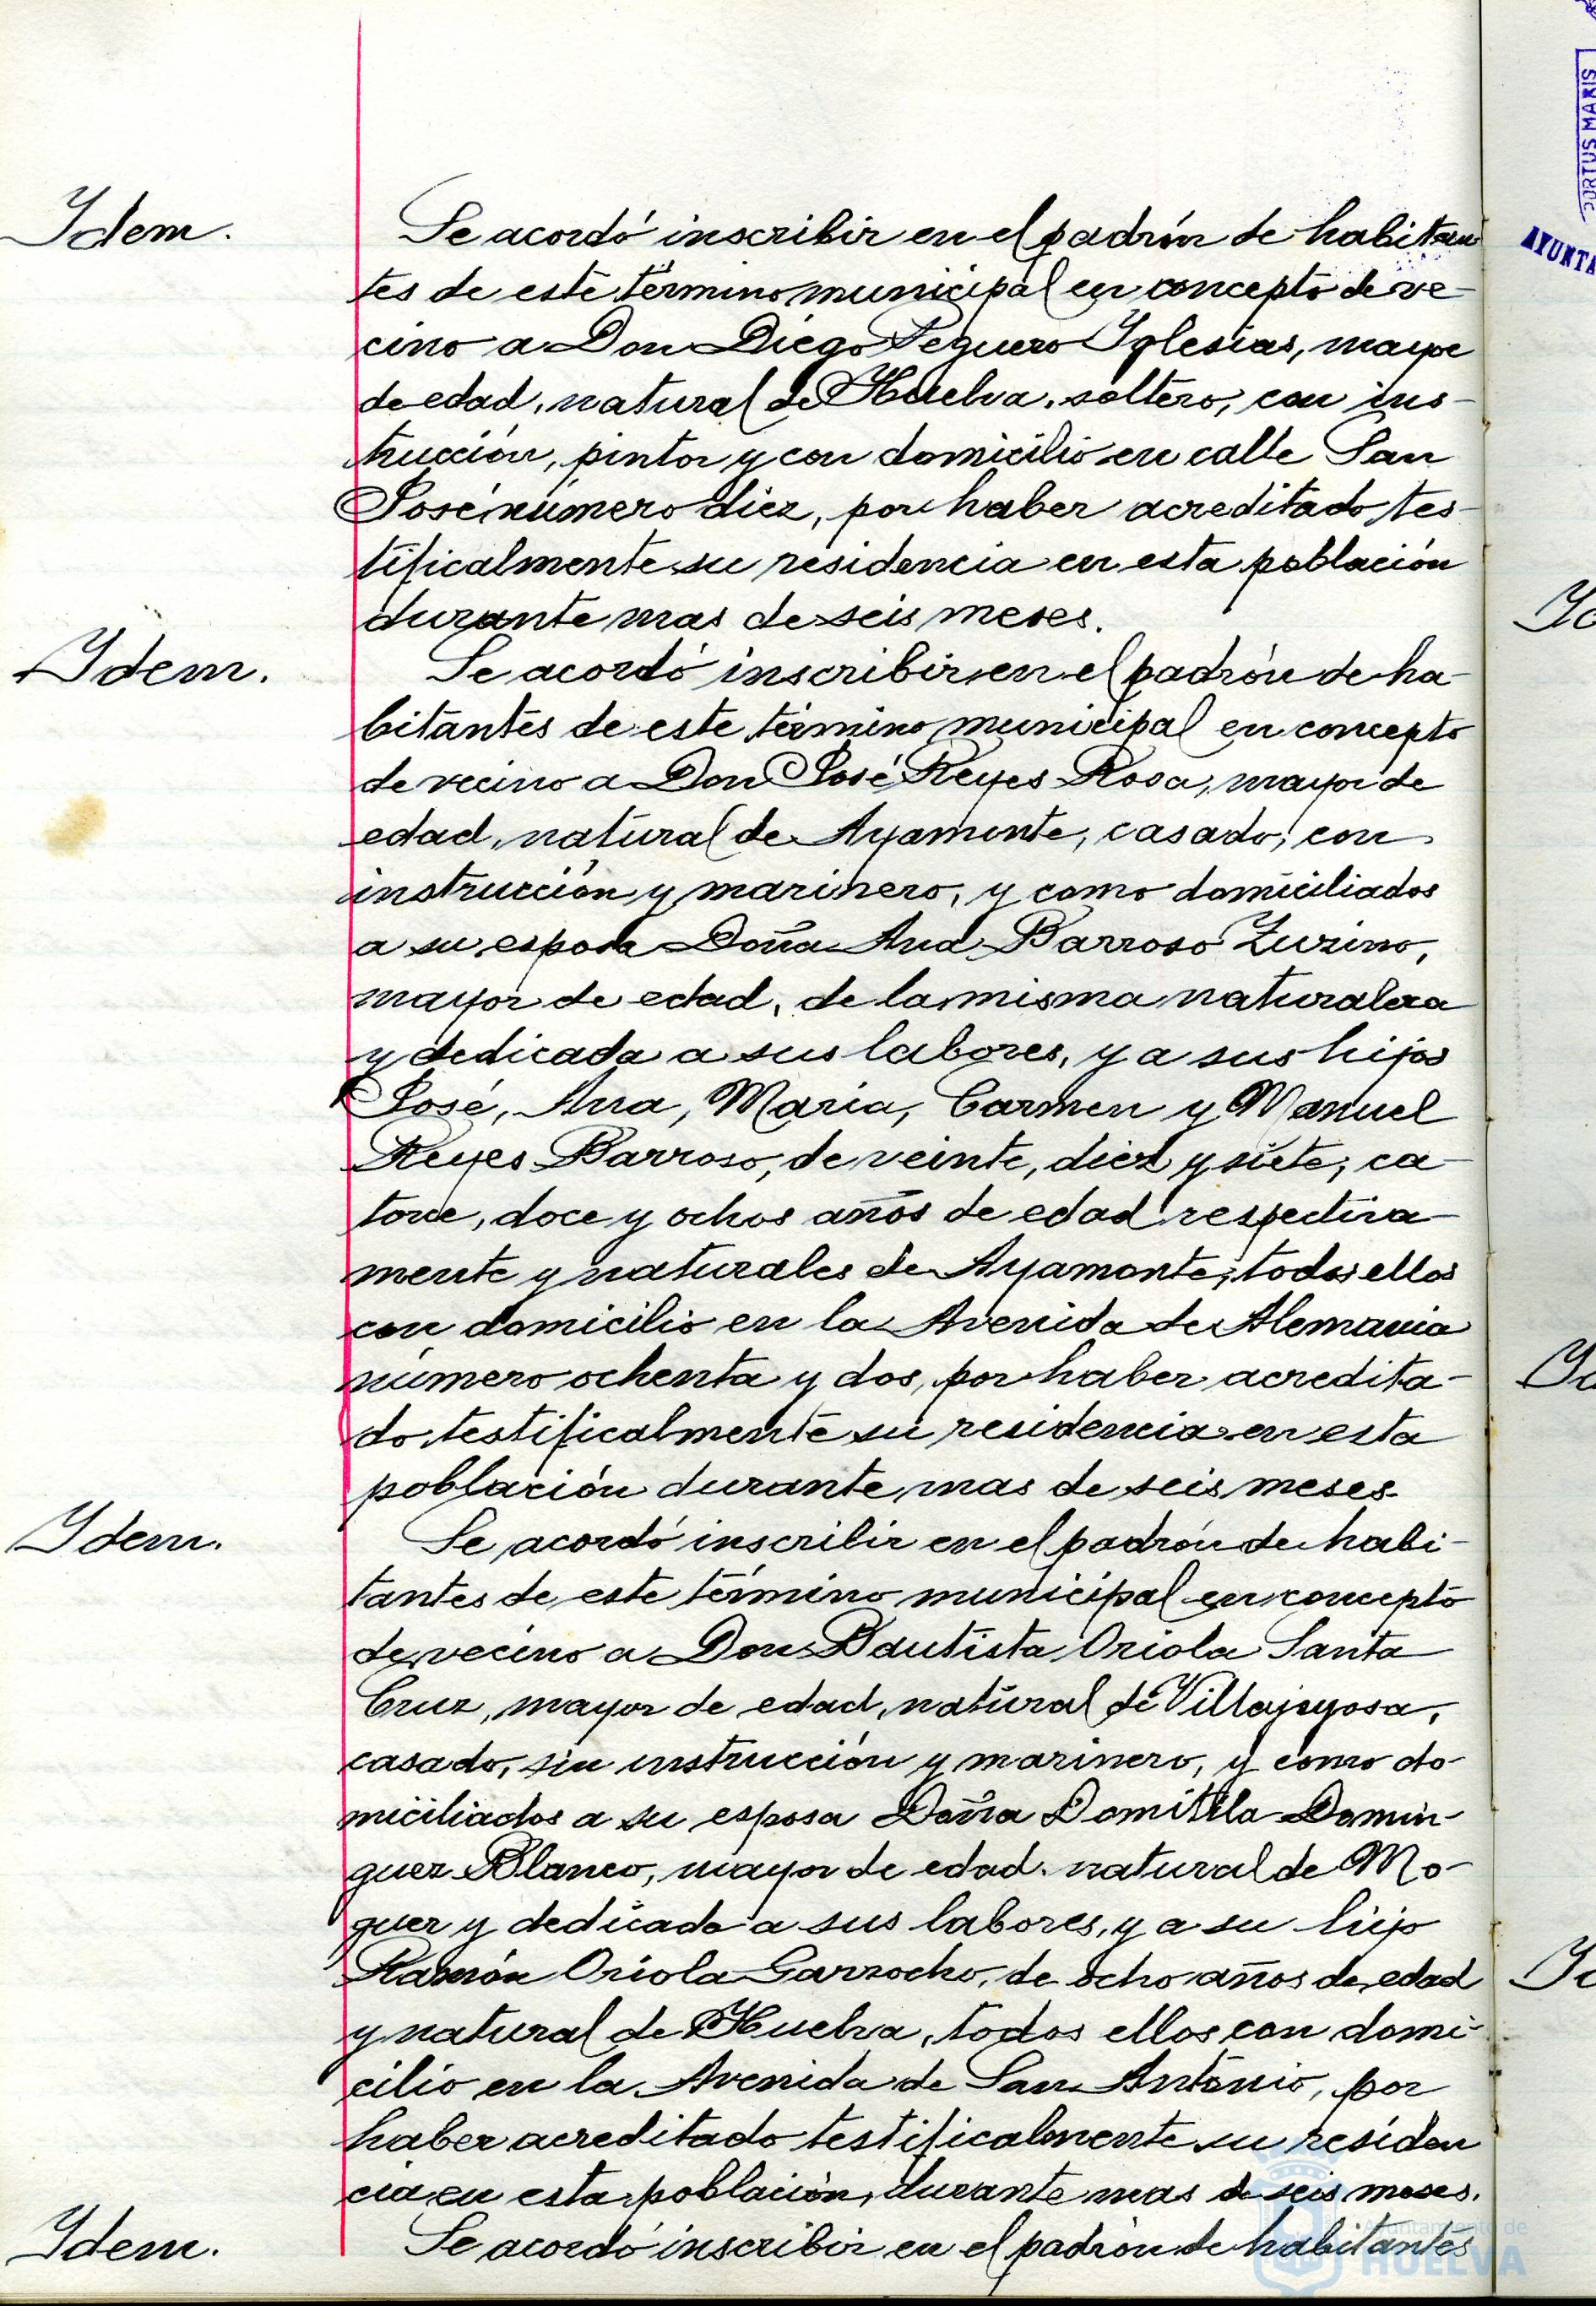 Ydem.
Se acordó inscribir en el padrón de habitan
tes de este término municipal en concepto de ve-
cino a Don Diego Peguero Yglesias, mayor
de edad, natural de Huelva, soltero, con ins-
trucción, pintor y con domicilio en calle San
José número diez, por haber acreditado tes-
tificalmente su residencia en esta población
durante mas de seis meses.
Ydem.
Se acordó inscribir en el padrón de ha-
bitantes de este término municipal en concepto
de vecino a Don José Reyes Rosa, mayor de
edad, natural de Ayamonte, casado, con
instrucción y marinero, y como domiciliados
a su esposa Doña Ana Barroso Zurino,
mayor de edad, de la misma naturaleza
y dedicada a sus labores, y a sus hijos
José, Ana, María, Carmen y Manuel
Reyes Barroso, de veinte, diez y siete, ca-
torce, doce y ochos años de edad respectiva-
mente y naturales de Ayamonte, todos ellos
con domicilio en la Avenida de Alemania
número ochenta y dos, por haber acredita-
do testificalmente su residencia en esta
población durante mas de seis meses.
Ydem.
Se acordó inscribir en el padrón de habi-
tantes de este término municipal en concepto
de vecino a Don Bautista Oriola Santa
Cruz, mayor de edad, natural de Villajoyosa,
casado, sin instrucción y marinero, y como do-
miciliados a su esposa Doña Domitila Domin-
guez Blanco, mayor de edad, natural de Mo-
guer y dedicada a sus labores, y a su hijo
Ramón Oriola Garrocho, de ocho años de edad
y natural de Huelva, todos ellos con domi-
cilio en la Avenida de San Antonio, por
haber acreditado testificalmente su residen
cia en esta población, durante mas de seis meses.
Ydem.
Se acordó inscribir en el padrón de habitantes
Ayuntamiento de
HUELVA
PORTUS MARIS
AYUNTA
Yd
Yd
Yd